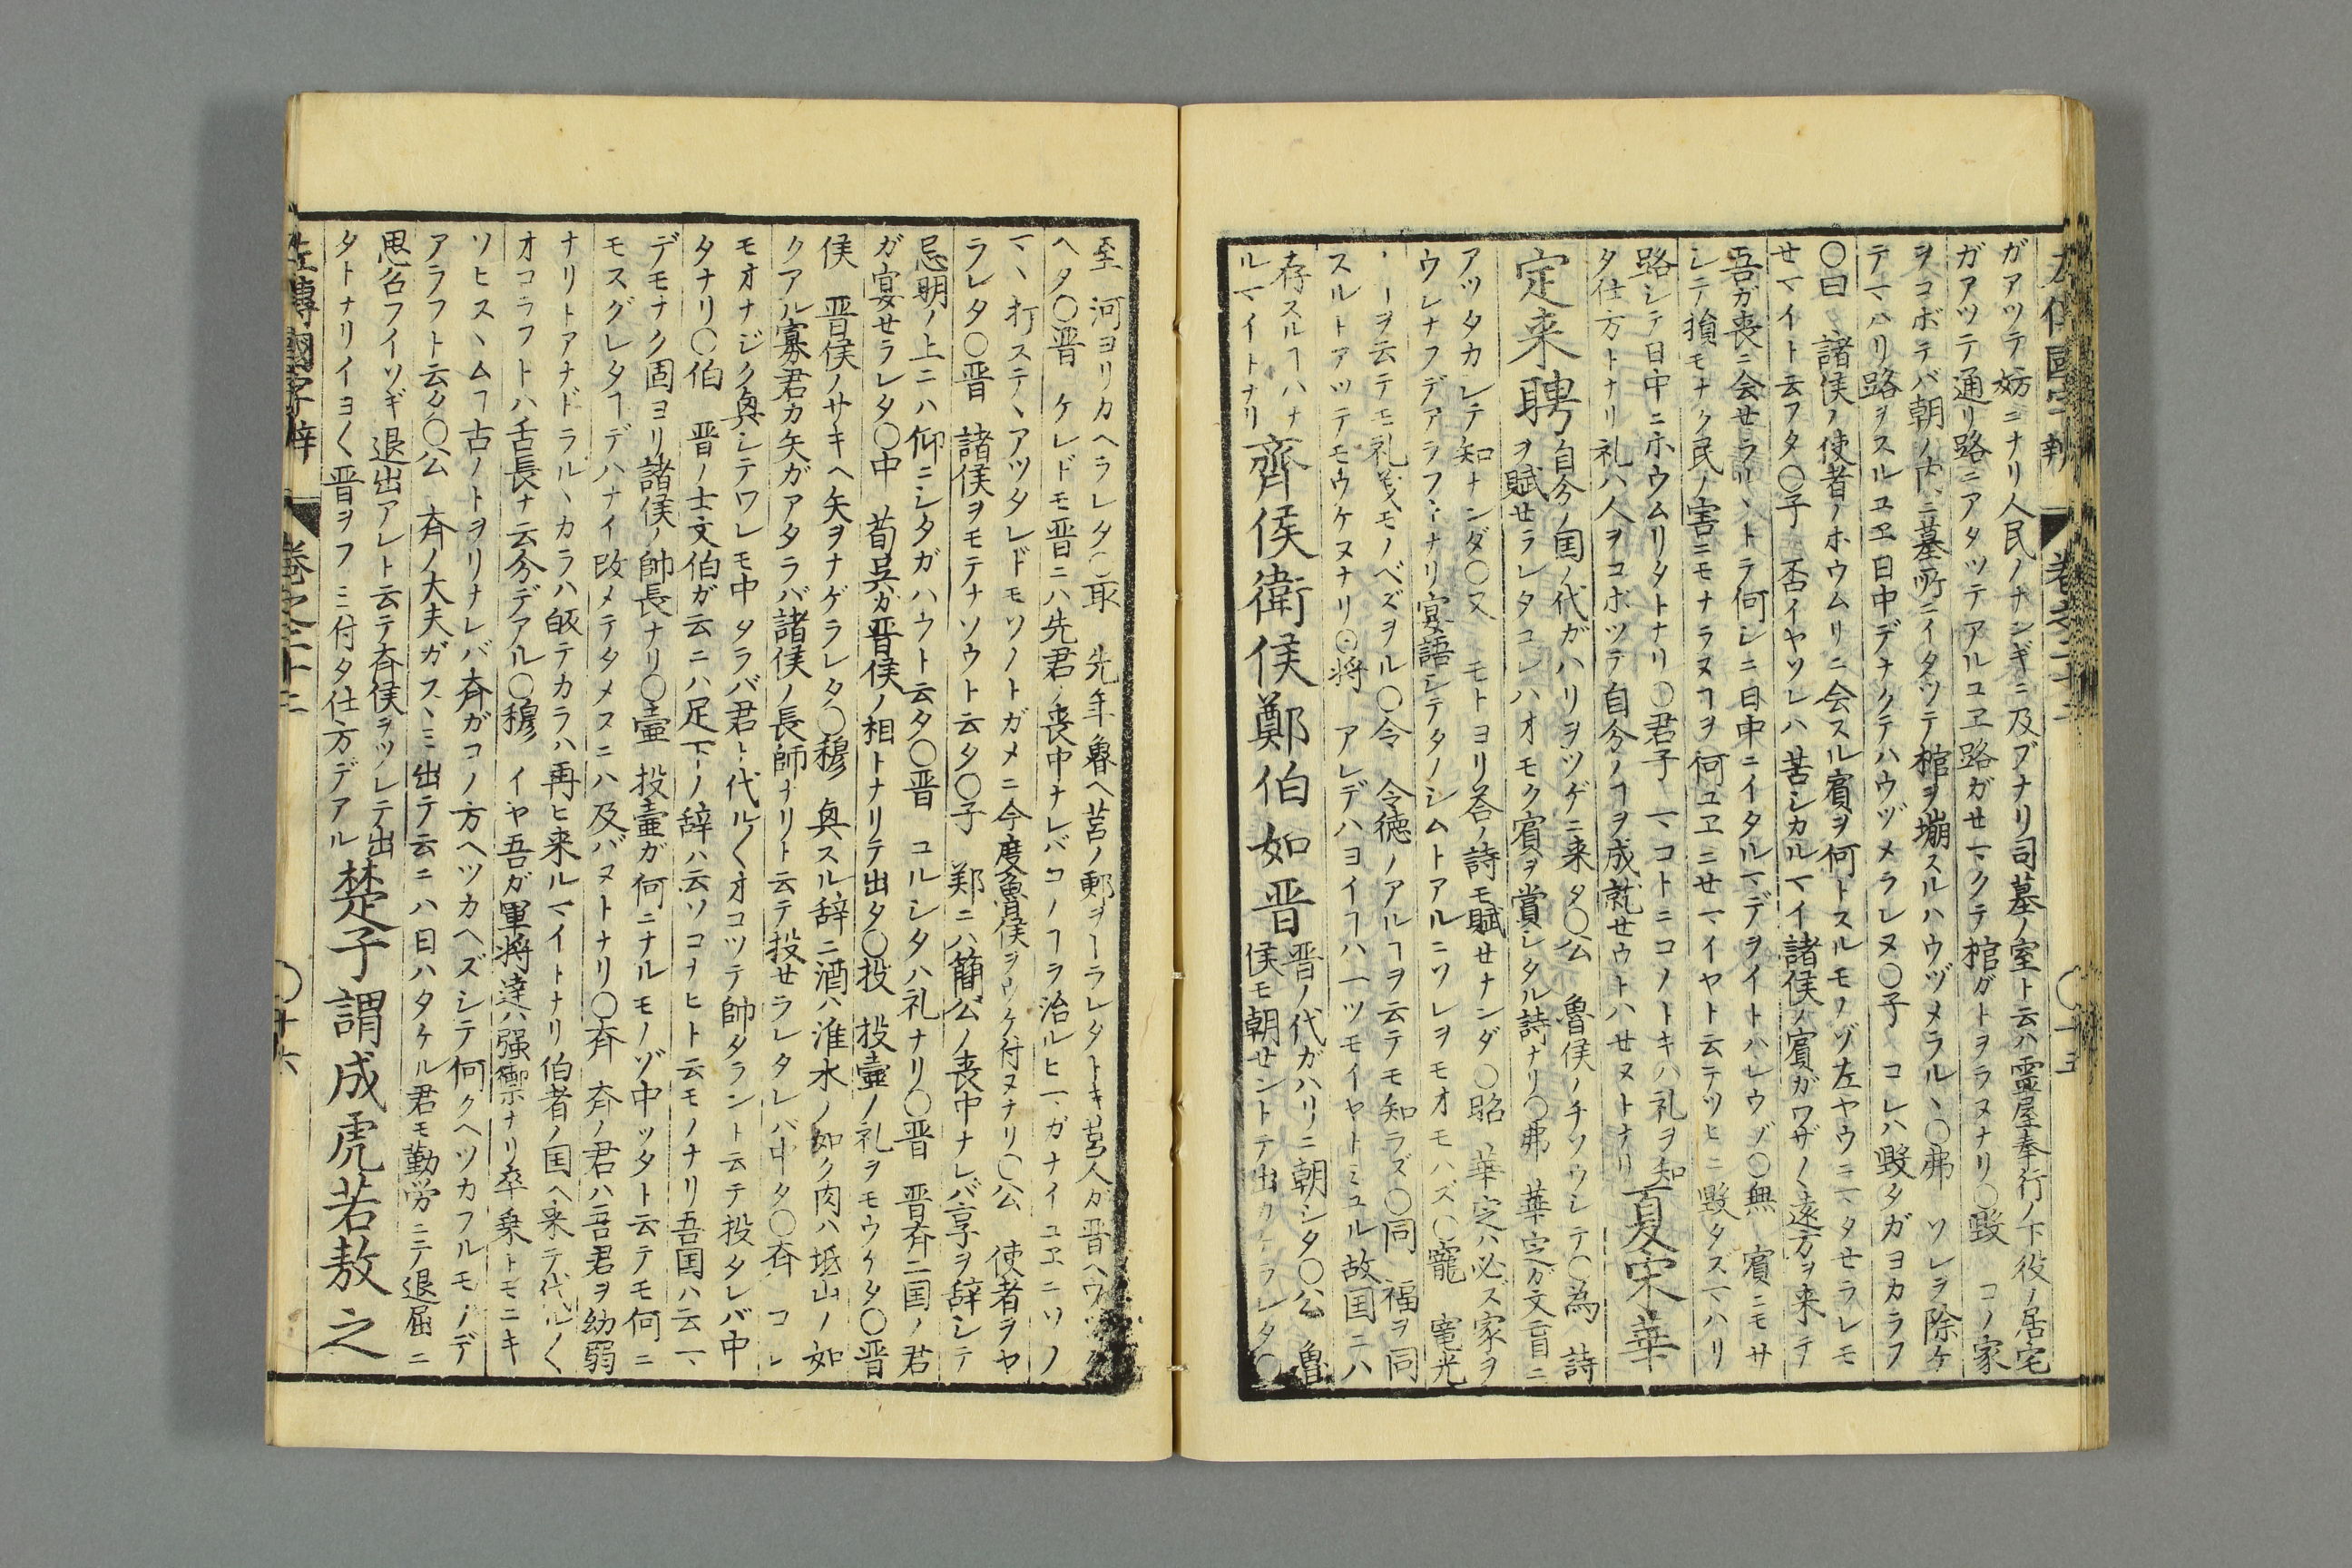 左傳國字辯 巻之二十二 〇十五
ガアツテ妨ニナリ人民ノナンギニ及ブナリ司墓ノ室ト云ハ霊屋奉行ノ下役ノ居宅
ガアツテ通リ路ニアタツテアルユヱ路ガセマクテ棺ガトヲラヌナリ〇毀 コノ家
ヲコボテバ朝ノ内ニ墓所ニイタツテ棺ヲ塴スルハウヅメラル丶〇弗 ソレヲ除ケ
テマハリ路ヲスルユヱ日中デナクテハウヅメラレヌ〇子 コレハ毀タガヨカラフ
〇曰 諸侯ノ使者ノホウムリニ会スル賓ヲ何トスルモノゾ左ヤウニマタセラレモ
セマイト云フタ〇子 否イヤソレハ苦シカルマイ諸侯ノ賓ガワザ〱遠方ヲ来テ
吾ガ喪ニ会セラル丶トラ何シニ日中ニイタルマデヲイトハレウゾ〇無 賓ニモサ
シテ損モナク民ノ害ニモナラヌヿヲ何ユヱニセマイヤト云テツヒニ毀タズマハリ
路シテ日中ニホウムリタトナリ〇君子 マコトニコノトキハ礼ヲ知
タ仕方トナリ礼ハ人ヲコボツテ自分ノヿヲ成就セウトハセヌトナリ
夏宋華
定来聘
自分ノ国ノ代ガハリヲツゲニ来タ〇公 魯侯ノチソウシテ〇為 詩
ヲ賦セラレタコレハオモク賓ヲ賞シタル詩ナリ〇弗 華定ガ文盲ニ
アツタカレテ知ナンダ〇又 モトヨリ荅ノ詩モ賦セナンダ〇昭 華定ハ必ズ家ヲ
ウレナフデアラフトナリ宴語シテタノシムトアルニソレヲモオモハズ〇寵 寵光
ノヿヲ云テモ礼義モノベズヲル〇令 令徳ノアルヿヲ云テモ知ラズ〇同 福ヲ同
スルトアツテモウケヌナリ〇将 アレデハヨイヿハ一ツモイヤトミユル故国ニハ
存スルヿハナ
ルマイトナリ
齊侯衛侯鄭伯如晋
晋ノ代ガハリニ朝シタ〇公 魯
侯モ朝セントテ出カケラレタ〇
至 河ヨリカヘラレタ〇取 先年魯ヘ莒ノ郠ヲトラレタトキ莒人ガ晋ヘウツタ
ヘタ〇晋 ケレドモ晋ニハ先君ノ喪中ナレバコノヿヲ治ルヒマガナイユヱニソノ
マ丶打ステ丶アツタレドモソノトガメニ今度魯侯ヲウケ付ヌナリ〇公 使者ヲヤ
ラレタ〇晋 諸侯ヲモテナソウト云タ〇子 鄭ニハ簡公ノ喪中ナレバ享ヲ辞シテ
忌明ノ上ニハ仰ニシタガハウト云タ〇晋 ユルシタハ礼ナリ〇晋 晋斉二国ノ君
ガ宴セラレタ〇中 荀呉ガ晋侯ノ相トナリテ出タ〇投 投壷ノ礼ヲモウケタ〇晋
侯 晋侯ノサキヘ矢ヲナゲラレタ〇穆 與スル辞ニ酒ハ淮水ノ如ク肉ハ坻山ノ如
クアル寡君カ矢ガアタラバ諸侯ノ長師ナリト云テ投セラレタレバ中タ〇斉 コレ
モオナジク與シテワレモ中タラバ君ト代ル〱オコツテ帥タラント云テ投タレバ中
タナリ〇伯 晋ノ士文伯ガ云ニハ足下ノ辞ハ云ソコナヒト云モノナリ吾国ハ云マ丶
デモナク固ヨリ諸侯ノ帥長ナリ〇壷 投壷ガ何ニナルモノゾ中ツタト云テモ何ニ
モスグレタヿデハナイ改メテタメスニハ及バヌトナリ〇斉 斉ノ君ハ吾君ヲ幼弱
ナリトアナドラル丶カラハ皈テカラハ再ヒ来ルマイトナリ伯者ノ国ヘ来テ代ル〱
オコラフトハ舌長ナ云分デアル〇穆 イヤ吾ガ軍将達ハ強禦ナリ卒乗トモニキ
ソヒス丶ムヿ古ノトヲリナレバ斉ガコノ方ヘツカヘズシテ何クヘツカフルモノデ
アラフト云タ〇公 斉ノ大夫ガス丶ミ出テ云ニハ日ハタケル君モ勤労ニテ退屈ニ
思召フイソギ退出アレト云テ斉侯ヲツレテ出
タトナリイヨ〱晋ヲフミ付タ仕方デアル
楚子謂成虎若敖之
左傳國字辯 巻之二十二 〇十六